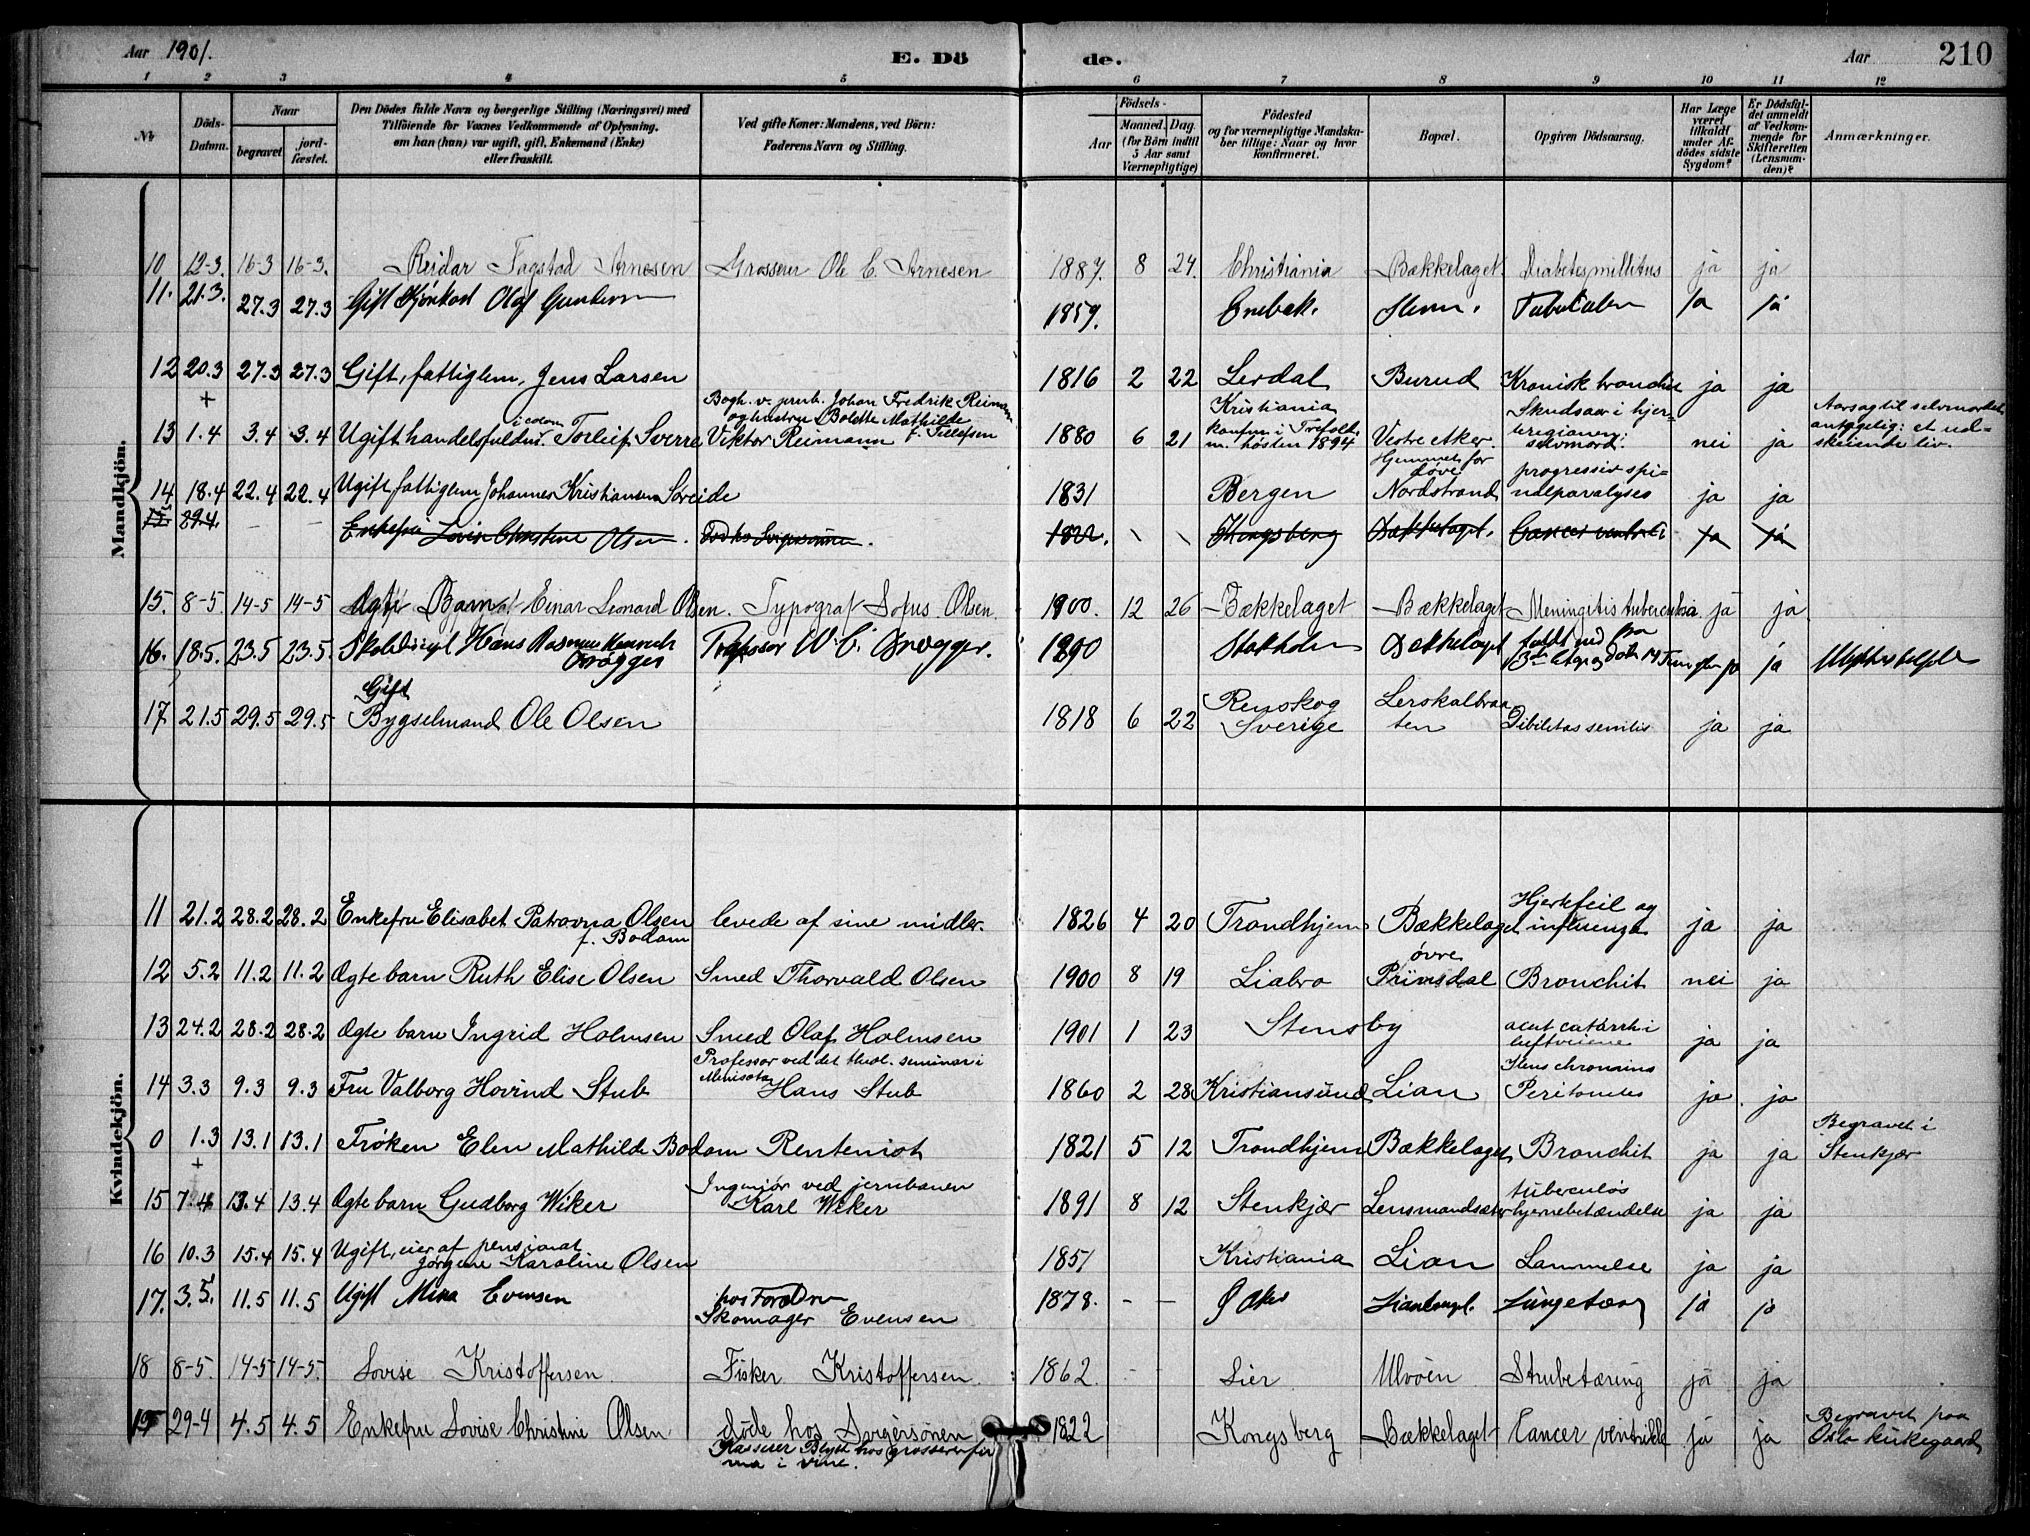 Aar 1901. E. Dö de. Aar 210
1 2 3 4 5 6 7 8 9 10 11 12
№ Döds-Datum. Naar begravet jordfæstet.
Den Dödes fulde Navn og borgerlige Stilling (Næringsvei) med
Tilföiende for Voxnes Vedkommende af Oplysning,
om han (hun) var ugift, gift, Enkemand (Enke)
eller fraskilt.
Ved gifte Koner: Mandens, ved Börn:
Faderens Navn og Stilling.
Födsels-
Aar Maaned. Dag.
(for Börn indtil
5 Aar samt
Værnepligtige)
Födested
og for værnepligtige Mandskaber tillige: Naar og hvor
konfirmeret.
Bopæl.
Opgiven Dödsaarsag.
Har Læge været tilkaldt under Afdödes sidste Sygdom?
Er Dödsfaldet anmeldt af Vedkommende for Skifteretten (Lensmanden)?
Anmærkninger.
Mandkjön.
10 12-3. 16-3 16-3. Reidar Fagstad Arnesen Grosserer Ole C. Arnesen 1887. 8 24. Christiania Bækkelaget. Diabetes millitus ja ja
11. 21.3. 27.3 27.3 Gift Olaf 1859. Enebak. ja ja
12 20.3 27.3 27.3 Gift, fattiglem, Jens Larsen 1816 2 22 Lerdal Burud Kronisk ja ja
+
13 1.4 3.4 3.4 Ugift Torleif Sverre Viktor Reimann
Bogh. v. jernb. Johan Fredrik Reimann
og hustru Bolette Mathilde
1880 6 21 Kristiania
konfm. i Trefoldh.
m. høsten 1894 Vestre Aker. Skudsaar i hjerteregionen:
selvmord. nei ja Aarsag til selvmordet
antagelig: et udskeiende liv.
14 18.4 22.4 22.4 Ugift fattiglem Johannes Kristiansen Søreide 1831 Bergen Hjemmet for
døve
Nordstrand progressiv spinalparalyses ja ja
29.4. – – Enkefru Lovise Christine Olsen. 1822. Kongsberg Bækkelaget. Cancer ja ja
15. 8-5. 14-5 14-5 Ægte Barn Einar Leonard Olsen. Typograf Sofus Olsen. 1900. 12 26 Bækkelaget Bækkelaget Meningitis tuberculosa ja ja
16. 18.5. 23.5 23.5. Hans Brøgger Professor W. C. Brøgger. 1890 Stokholm Bækkelaget ja
17 21.5 29.5 29.5 Gift
Bygselmand Ole Olsen 1818 6 22 Renskog
Sverige Lerskalbraaten Debilitas senilis ja ja
Kvindekjön.
11 21.2 28.2 28.2 Enkefru Elisabet Petrovna Olsen
f. Bodom levede af sine midler. 1826 4 20 Trondhjem Bækkelaget Hjertefeil og
influenza ja ja
12 5.2 11.2 11.2 Ægte barn Ruth Elise Olsen Smed Thorvald Olsen 1900 8 19 Liabro øvre
Prinsdal Bronchit nei ja
13 24.2 28.2 28.2 Ægte barn Ingrid Holmsen Smed Olaf Holmsen 1901 1 23 Stensby acut catarrh i
luftveiene ja ja
14 3.3 9.3 9.3 Fru Valborg Hovind Stub Professor ved det theol. seminar i
Minisota
Hans Stub 1860 2 28 Kristiansund Lian Ilens chronains
Peritonites ja ja
0 1.3 13.1 13.1 Frøken Elen Mathilde Bodom Rentenist 1821 5 12 Trondhjem Bækkelaget Bronchit ja ja Begravet i
Stenkjær
+
15 7.4 13.4 13.4 Ægte barn Gudborg Wiker Ingeniør ved jernbanen
Karl Wiker 1891 8 12 Stenkjær Lensmandsæter tuberculøs
hjernebetændelse ja ja
16 10.3 15.4 15.4 Ugift, eier af pensionat
Jørgine Karoline Olsen 1851 Kristiania Lian Lammelse ja ja
17. 3.5. 11.5 11.5 Ugift Mina Evensen hos Forældre
Skomager Evensen 1878. – – Ø Aker Lungetæring ja ja
18 8-5. 14-5 14-5. Lovise Kristoffersen. Fisker Kristoffersen. 1862. – – Lier Ulvöen Strubetæring ja ja
19 29-4 4.5 4.5 Enkefru Lovise Christine Olsen døde hos Svigersönen
Kasserer Blytt hos grossererfirma i vine. 1822 Kongsberg Bækkelaget Cancer ventrikle ja ja Begravet paa
Oslo kirkegaard